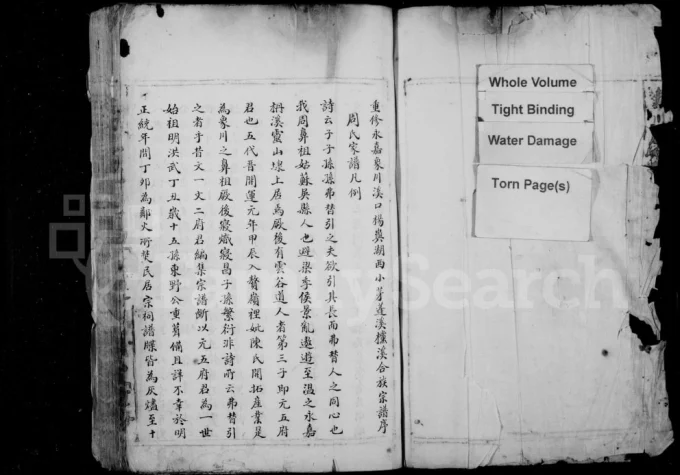 重修永嘉象川溪口楊奧湖西小茅蓬溪擛溪合族宗譜序
周氏家譜凡例
詩云子子孫孫弗替引之夫欲引其長而弗替人之同心也
我周鼻祖姑蘇吳縣人也避梁季侯景亂遨遊至溫之永嘉
枬溪盧山壊上居焉厥後有雲谷道人者第三子即元五府
君也五代晉開運元年甲辰入贅嶺裡姚陳氏開拓產業是
為象川之鼻祖厥後寢熾寢昌子孫繁衍非詩所云弗替引
之者乎昔文一文二府君編集宗譜斷以元五府君為一世
始祖明洪武丁丑歲十五孫東野公重葺備且詳不幸於明
正統年間丁卯為鄰火所焚民居宗祠譜牒皆為灰燼至十
Whole Volume
Tight Binding
Water Damage
Torn Page(s)
FamilySearch